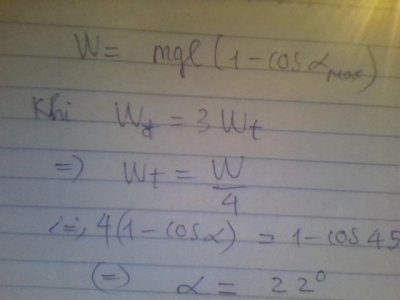 W = mgl (1 - cos α max)
Khi Wđ = 3 Wt
=> Wt = W/4
i=, 4(1 - cos α) = 1 - cos 45
(=) α = 22°